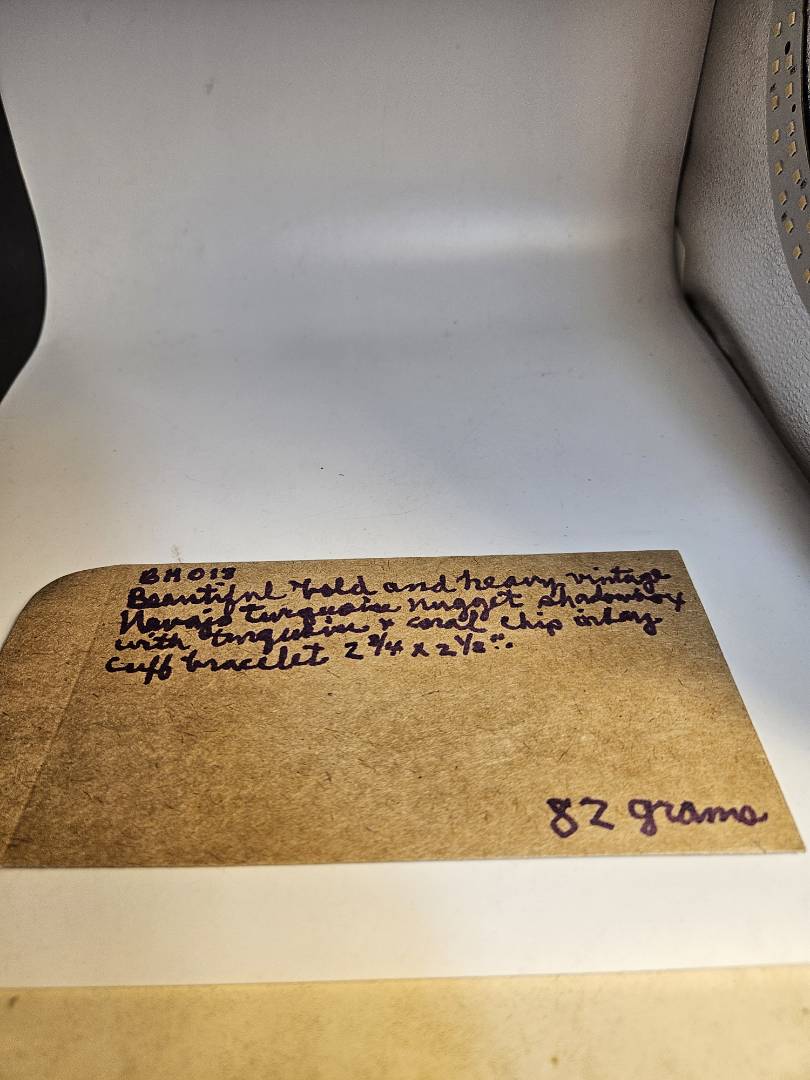 BH013
Beautiful bold and heavy vintage
Navajo turquoise nugget shadowbox
with turquoise & coral chip inlay
cuff bracelet 2 3/4 x 2 1/2".
82 grams